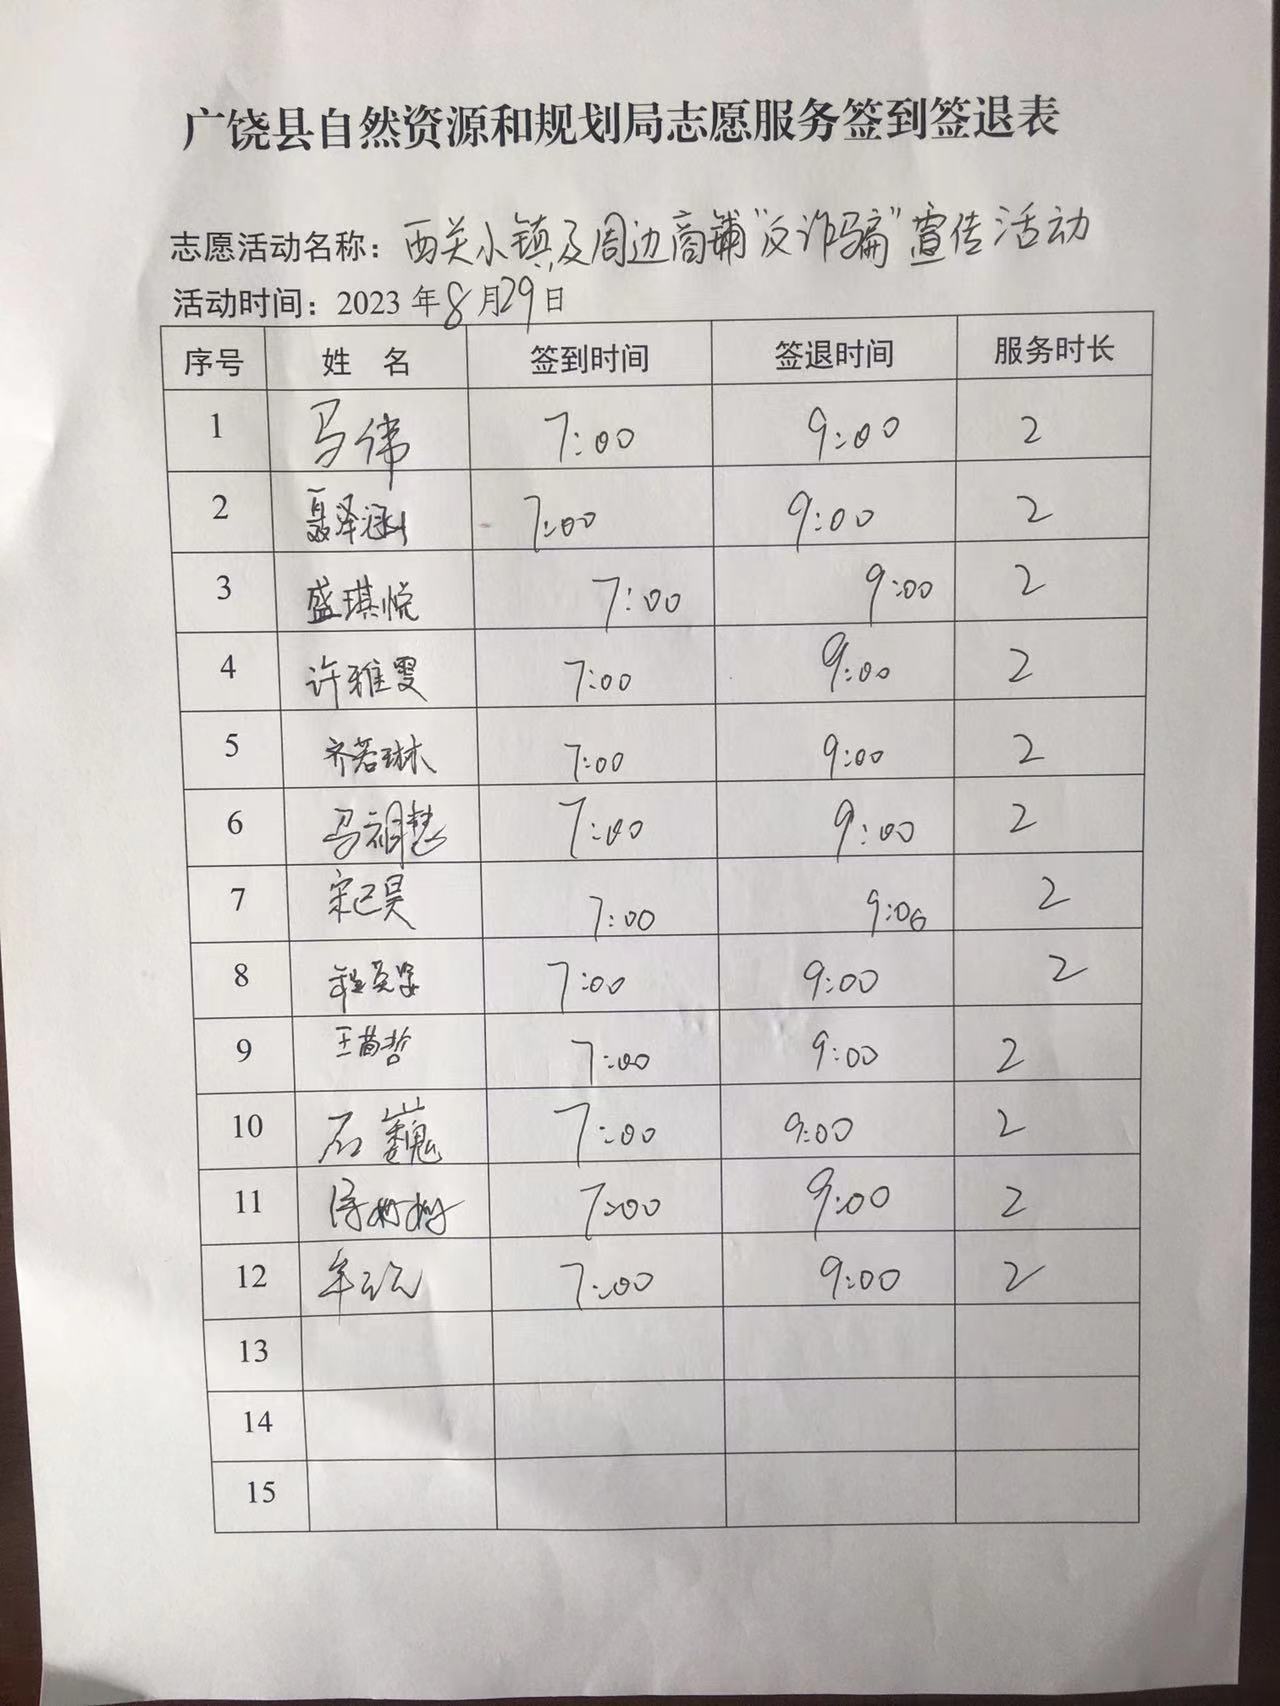 广饶县自然资源和规划局志愿服务签到签退表
志愿活动名称：西关小镇及周边商铺"反诈骗"宣传活动
活动时间：2023年8月29日
序号 姓 名 签到时间 签退时间 服务时长
1 马伟 7:00 9:00 2
2 聂泽涵 7:00 9:00 2
3 盛琪悦 7:00 9:00 2
4 许雅雯 7:00 9:00 2
5 齐若琳 7:00 9:00 2
6 马祖慧 7:00 9:00 2
7 宋己昊 7:00 9:00 2
8 7:00 9:00 2
9 王苗哲 7:00 9:00 2
10 石巍 7:00 9:00 2
11 7:00 9:00 2
12 7:00 9:00 2
13
14
15